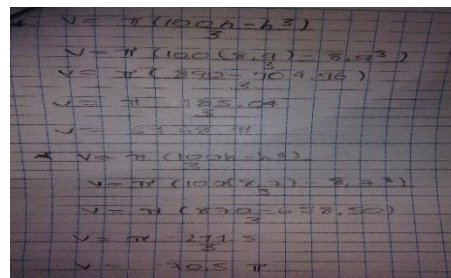 V = π (100h - h³)
3
V = π (100(8,9) - 8,9³)
3
V = π (890 - 704.96)
3
V = π 185.04
3
V = 61.68 π
V = π (100h - h³)
3
V = π (100(8,7) - 8,7³)
3
V = π (870 - 658.50)
3
V = π 211.5
3
V = 70.5 π